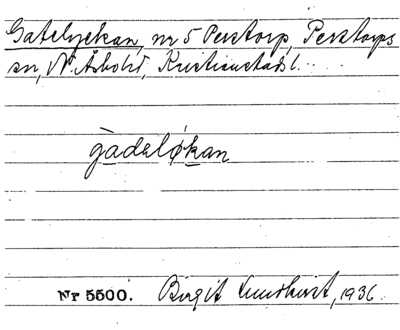 Gatelyckan, nr 5 Perstorp, Perstorps
sn, N. Åsbo hd, Kristianstads l.
gàdeløkan
Nr 5500. Birgit Lundkvist, 1936.